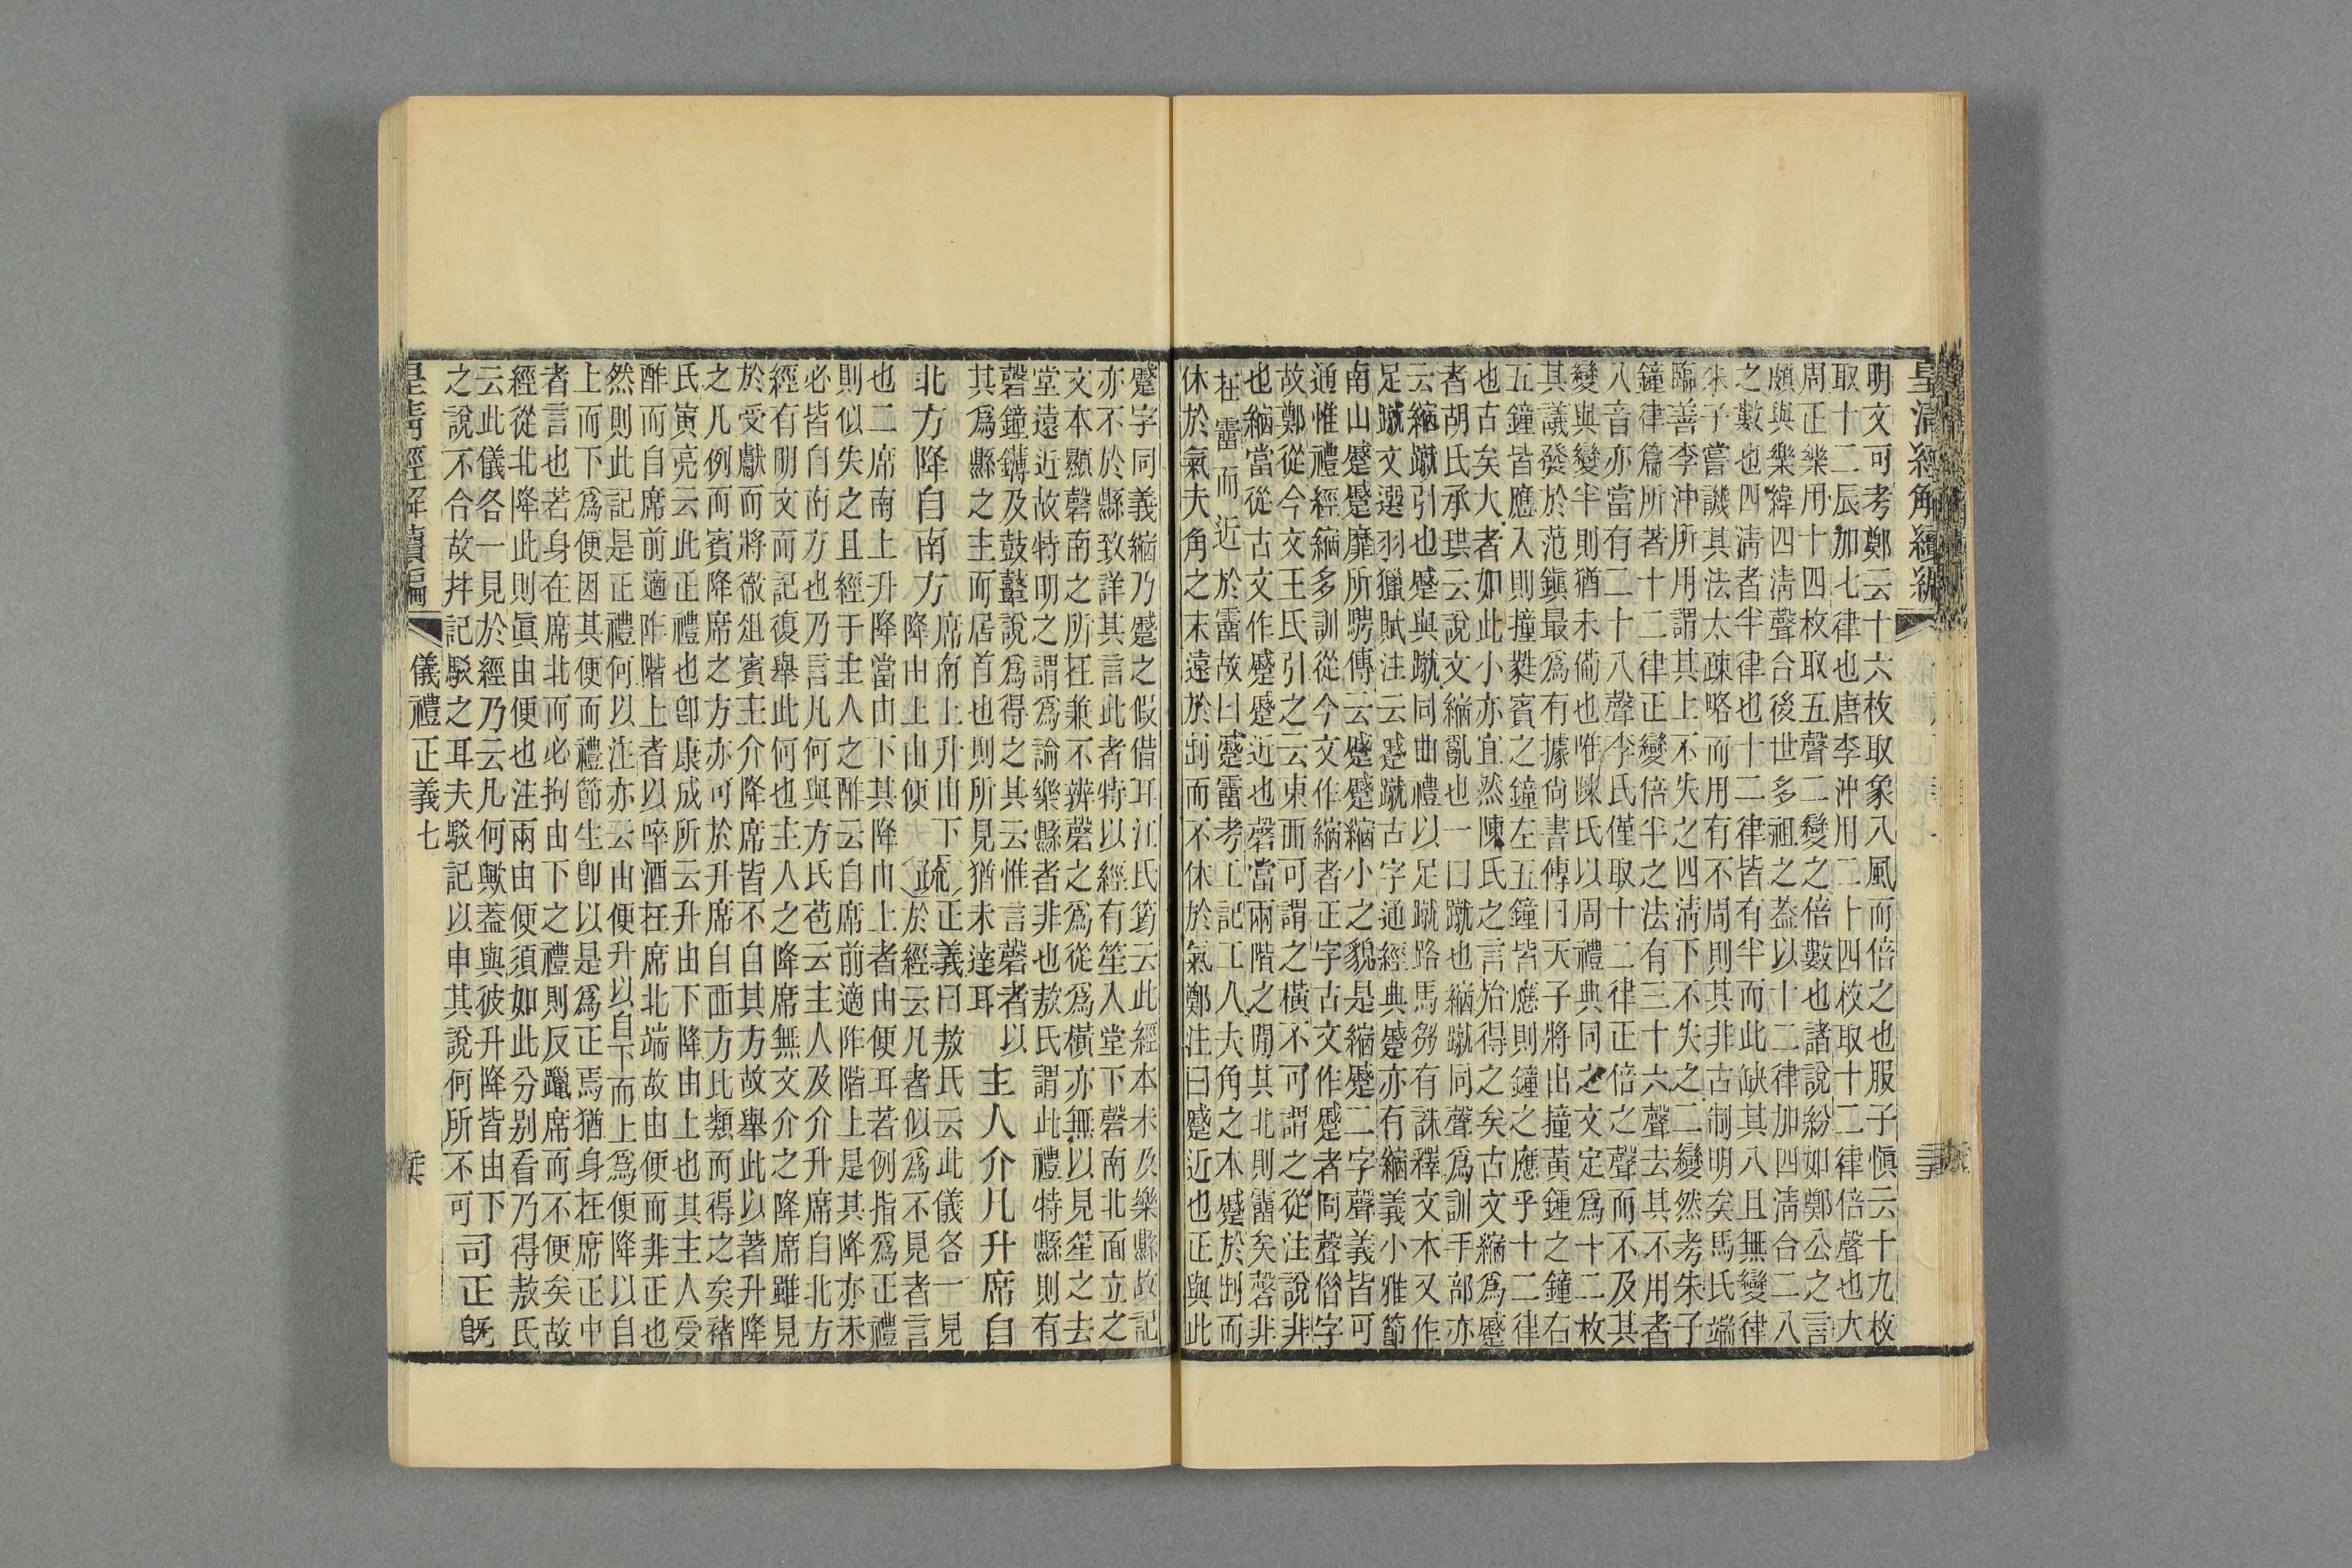 皇清經解續編
明文可考鄭云十六枚取象八風而倍之也服子愼云十九枚
取十二辰加七律也唐李沖用二十四枚取十二律倍聲也大
周正樂用十四枚取五聲二變之倍數也諸說紛如鄭公之言
頗與樂緯四淸聲合後世多祖之葢以十二律加四淸合二八
之數也四淸者半律也十二律皆有半而此缺其八且無變律
朱子嘗譏其法太疎略而用有不周則其非古制明矣馬氏端
臨善李沖所用謂其上不失之四淸下不失之二變然考朱子
鐘律篇所著十二律正變倍半之法有三十六聲去其不用者
八音亦當有二十八聲李氏僅取十二律正倍之聲而不及其
變與變半則猶未備也唯陳氏以周禮典同之文定爲十二枚
其議發於范鎭最爲有據尙書傳曰天子將出撞黃鍾之鐘右
五鐘皆應入則撞蕤賓之鐘左五鐘皆應則鐘之應乎十二律
也古矣大者如此小亦宜然陳氏之言殆得之矣古文縮爲蹙
者胡氏承珙云說文縮亂也一曰蹴也縮蹴同聲爲訓手部亦
云縮蹴引也蹙與蹴同曲禮以足蹴路馬芻有誅釋文本又作
足蹴文選羽獵賦注云蹙蹴古字通經典蹙亦有縮義小雅節
南山蹙蹙靡所騁傳云蹙蹙縮小之貌是縮蹙二字聲義皆可
通惟禮經縮多訓從今文作縮者正字古文作蹙者同聲偕字
故鄭從今文王氏引之云東而可謂之橫不可謂之從注說非
也縮當從古文作蹙蹙近也磬當兩階之閒其北則霤矣磬非
在霤而近於霤故曰蹙霤考工記工人大角之本蹙於㓢而
休於氣夫角之末遠於㓢而不休於氣鄭注曰蹙近也正與此
蹙字同義縮乃蹙之假借耳江氏筠云此經本未及樂縣故記
亦不於縣致詳其言此者特以經有笙入堂下磬南北面立之
文本顯磬南之所在兼不辨磬之爲從爲橫亦無以見笙之去
堂遠近故特明之謂爲論樂縣者非也敖氏謂此禮特縣則有
磬鐘鎛及鼓鼙說爲得之其云惟言磬者以
其爲縣之主而居首也則所見猶未達耳 主人介凡升席自
北方降自南方 席南上升由下降由上由便 疏 正義曰敖氏云此儀各一見於經云凡者似爲不見者言
也二席南上升降當由下其降由上者由便耳若例指爲正禮
則似失之且經于主人之酢云自席前適阼階上是其降亦未
必皆自南方也乃言凡何與方氏苞云主人及介升席自北方
經有明文而記復舉此何也主人之降席無文介之降席雖見
於受獻而將徹俎賓主介降席皆不自其方故舉此以著升降
之凡例而賓降席之方亦可於升席自西方比類而得之矣褚
氏寅亮云此正禮也卽康成所云升由下降由上也其主人受
酢而自席前適阼階上者以啐酒在席北端故由便而非正也
然則此記是正禮何以注亦云由便升以自下而上爲便降以自
上而下爲便因其便而禮節生卽以是爲正焉猶身在席正中
者言也若身在席北而必拘由下之禮則反躐席而不便矣故
經從北降此則眞由便也注兩由便須如此分別看乃得敖氏
云此儀各一見於經乃云凡何歟葢與彼升降皆由下
之說不合故拜記駁之耳夫駁記以申其說何所不可 司正旣
皇淸經解續編 儀禮正義七